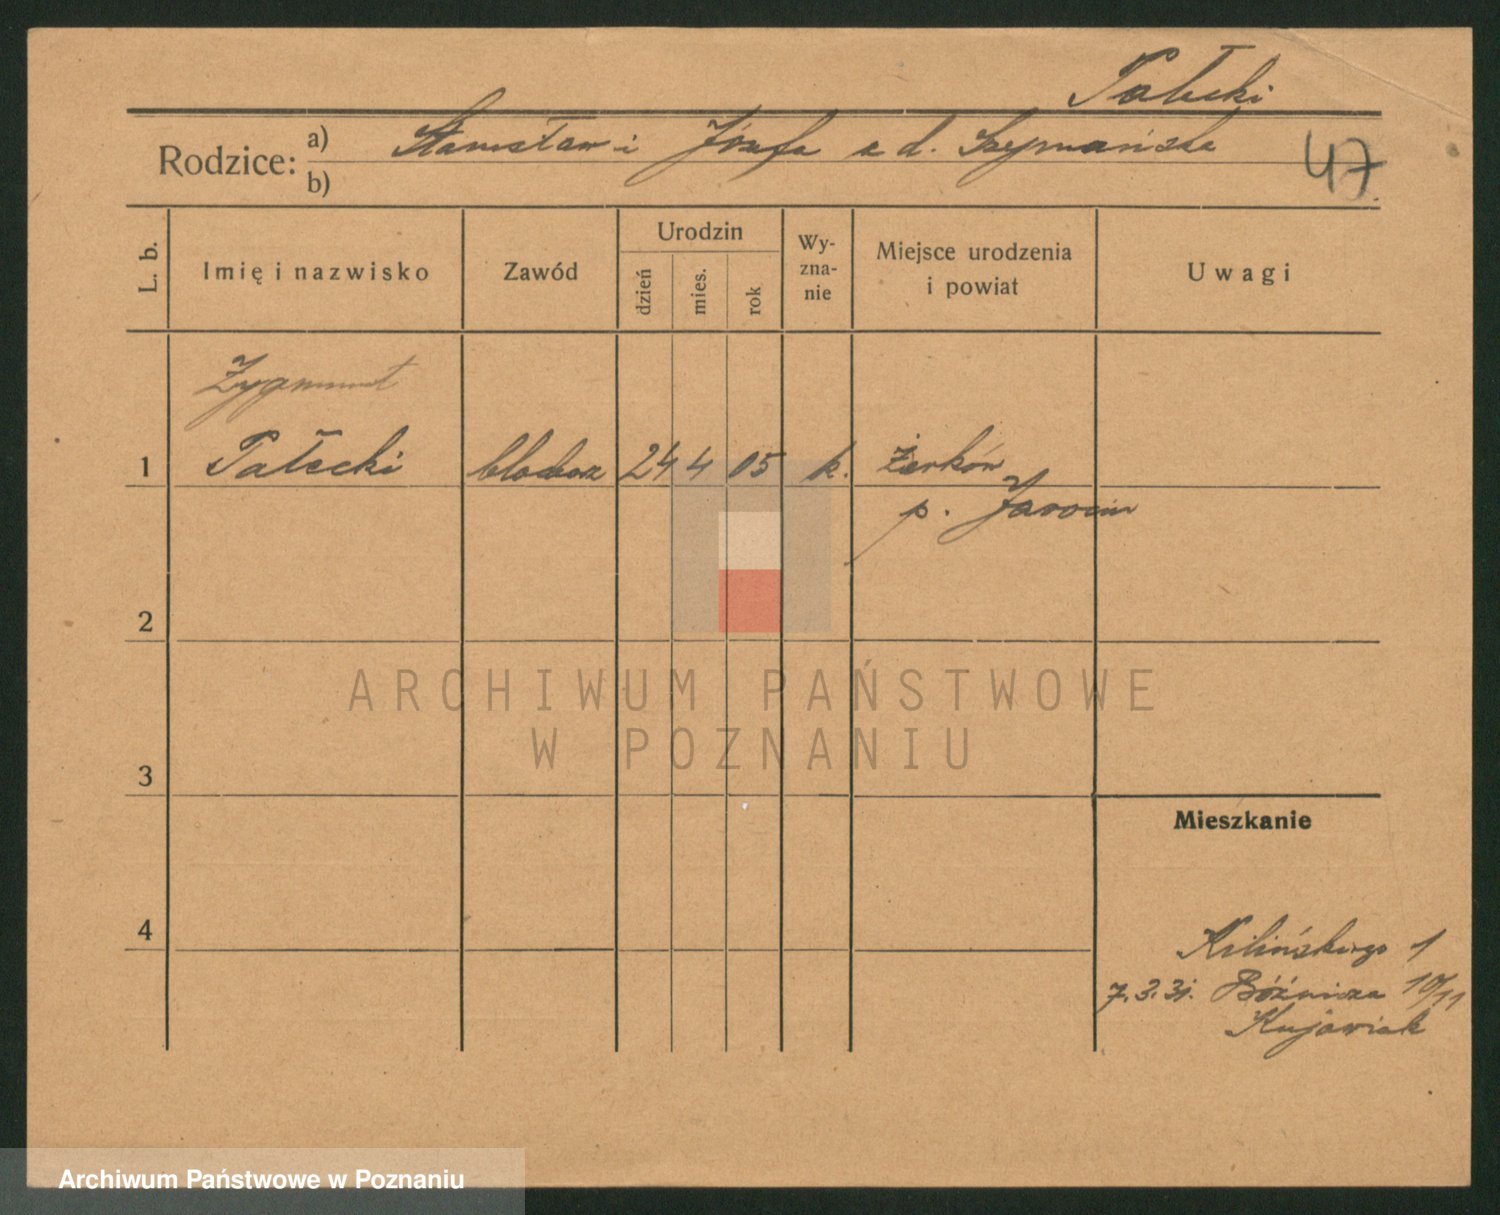 Pałecki
Rodzice:
a) Stanisław i Józefa z d. Szymańska
b)
47.
L. b.
Imię i nazwisko
Zawód
Urodzin
dzień
mies.
rok
Wy-
zna-
nie
Miejsce urodzenia
i powiat
Uwagi
Zygmunt
1 Pałecki blacharz 24 4 05 k. Żerków
p. Jarocin
2
ARCHIWUM PAŃSTWOWE
W POZNANIU
3
Mieszkanie
4
Kilińskiego 1
7.3.31. Bóźnicza 10/11
Kujawiak
Archiwum Państwowe w Poznaniu